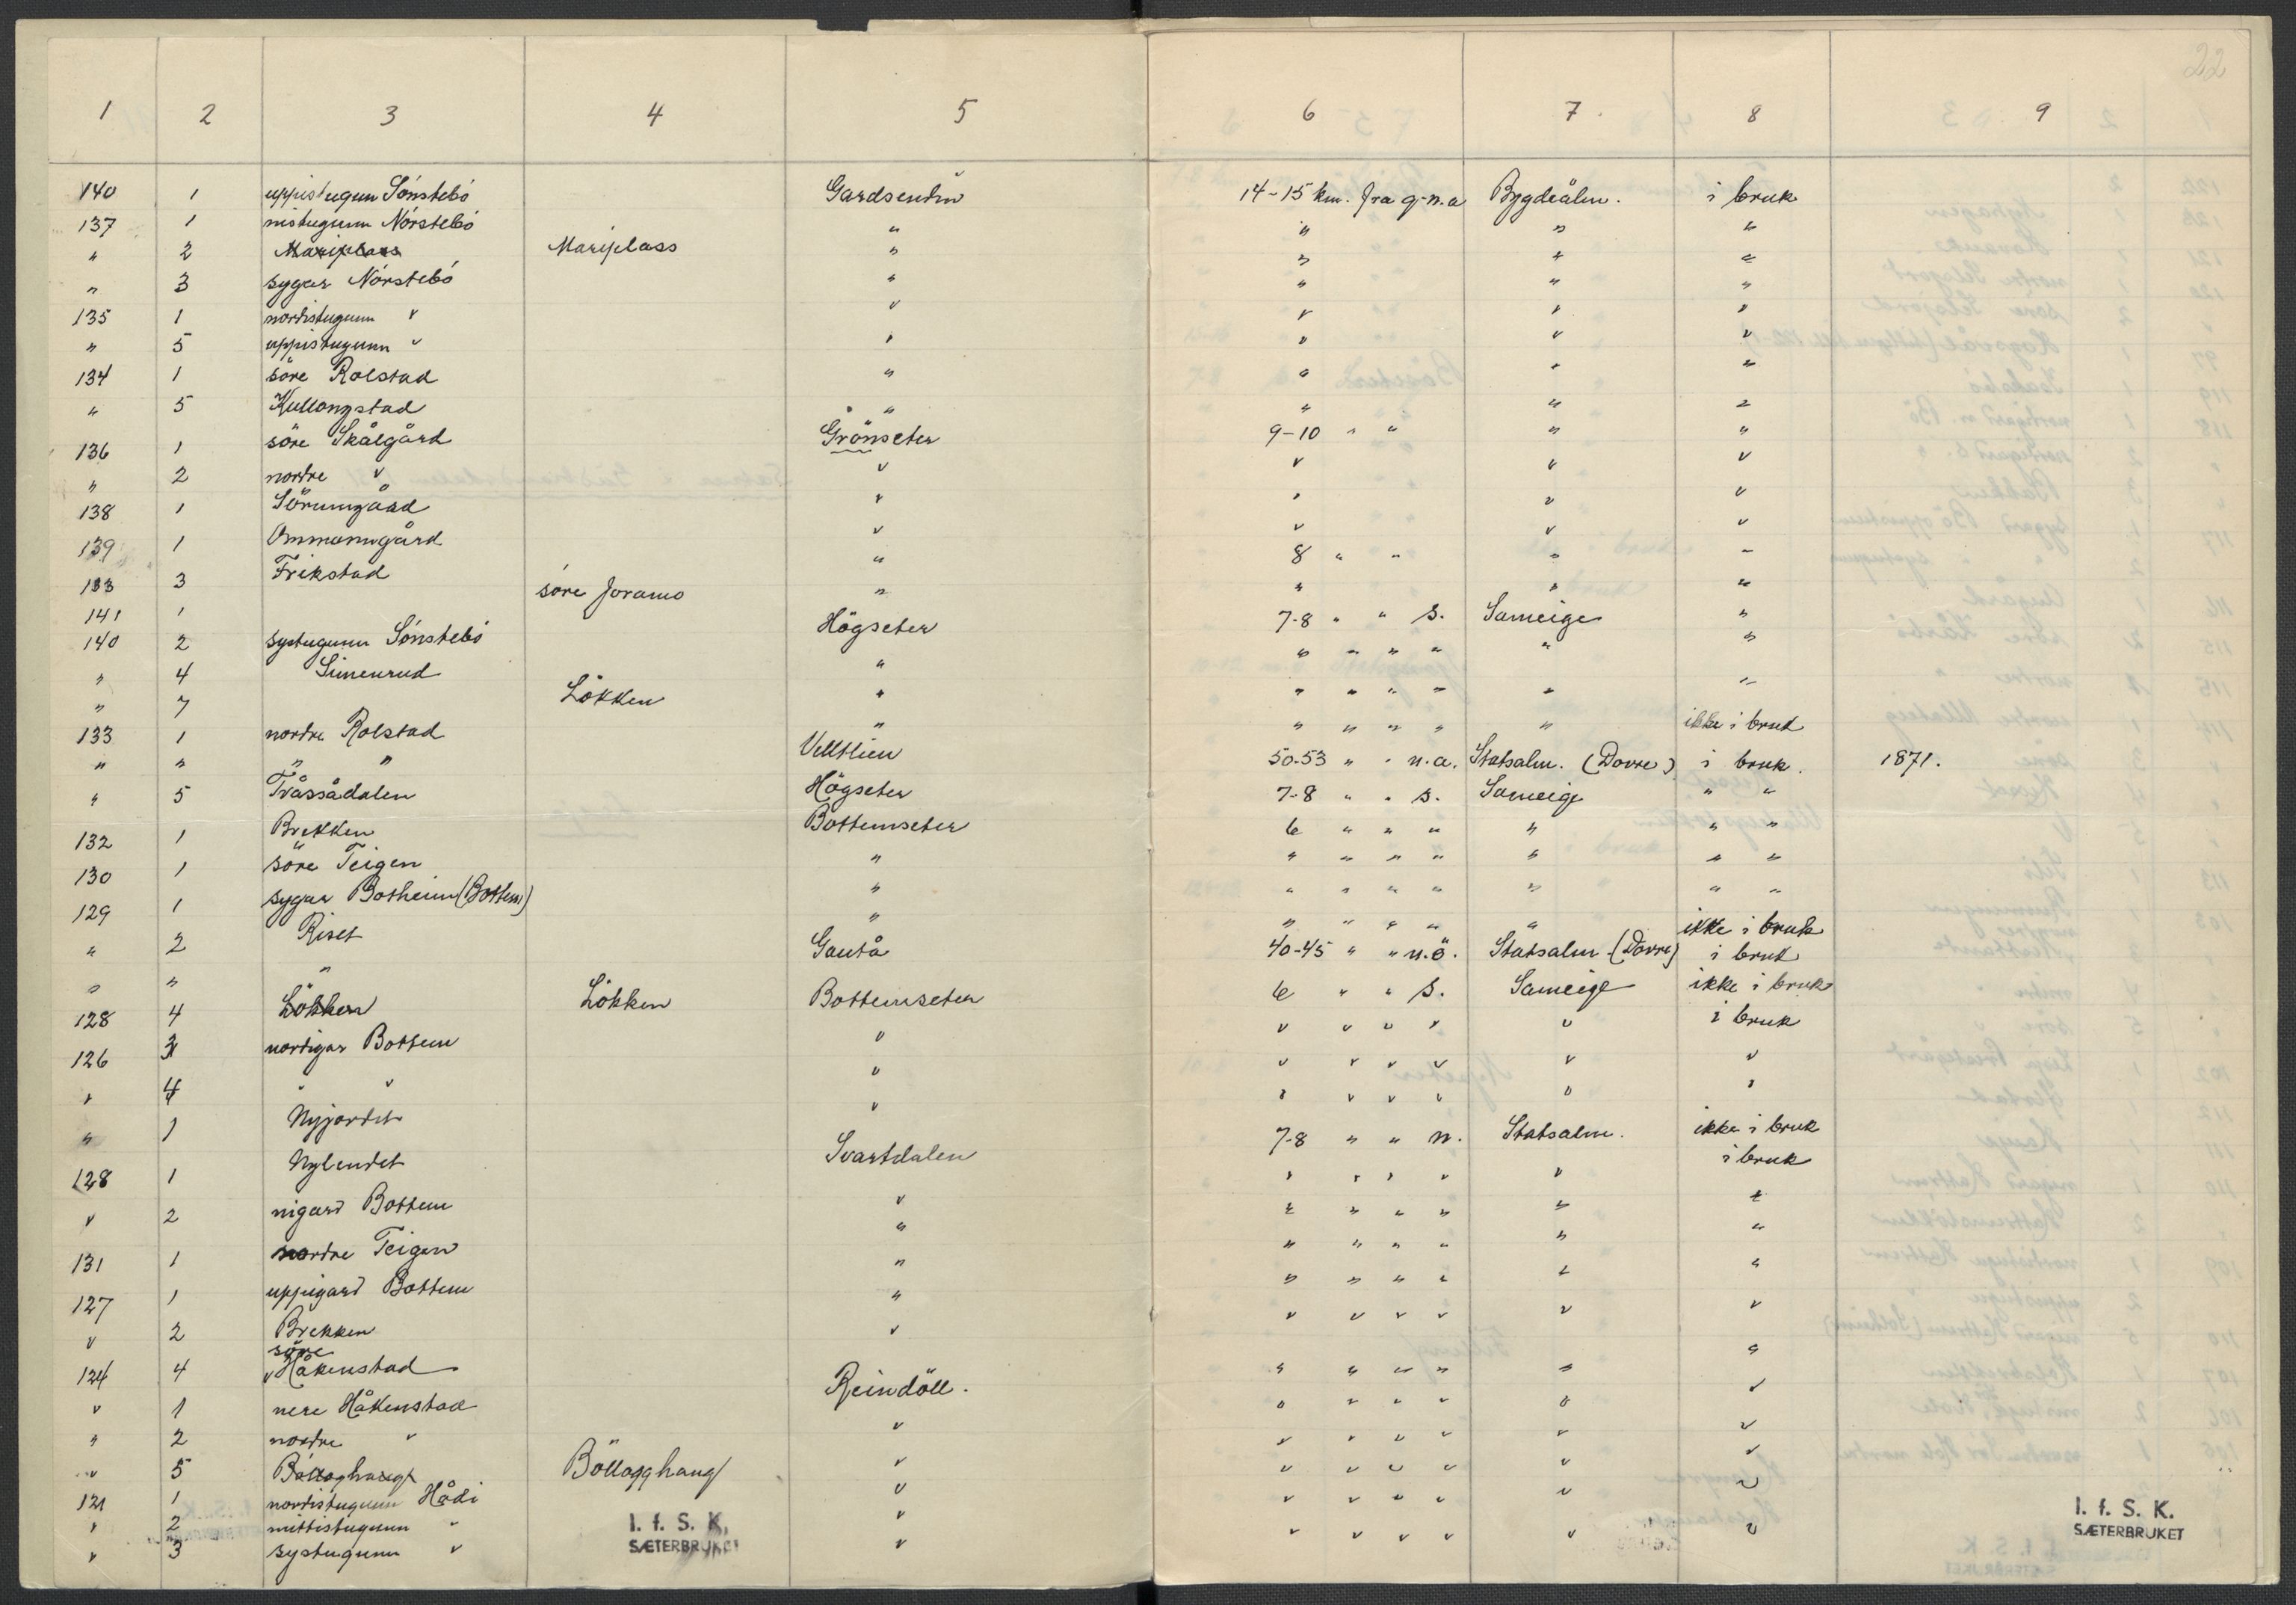 22
1 2 3 4 5 6 7. 8 9
140 1 uppistugun Sónstebó Gardsendin 14-15 km. fra g. n.a Bygdeålm. i bruk
137 1 nistugunn Nórstebó " " " "
" 2 Mariplass Mariplass " " " "
" 3 sygar Nórstebó " " " "
135 1 nordistugunn " " " " "
" 5 uppistugunn " " " " "
134 1 söre Rolstad " " " "
" 5 Kullongstad " " " "
136 1 söre Skålgård Grönseter 9-10 " " " "
" 2 nordre " " " " "
138 1 Sörumgård " " " "
139 1 Ommomgård " " " "
133 3 Frikstad " 8 " " " "
141 1 söre Joramo " " " "
140 2 systugunn Sónstebó Högseter 7-8 " " s. Sameige "
" 4 Simenrud " " " " " " "
" 7 Lökken " " " " " " "
133 1 nordre Rolstad " " " " " " ikke i bruk
" " " " Velltlien 50-53 " " n.a. Statsalm. (Dovre) i bruk. 1871.
" 5 Tråssådalen Högseter 7-8 " " s. Sameige " "
132 1 Brekken Bottemseter 6 " " " " " "
130 1 söre Teigen " " " " " " " "
129 1 sygar Botheim (Bottem) " " " " " " " "
" 2 Riset " " " " " " ikke i bruk
" " " Gautå 40-45 " " n.ö. Statsalm (Dovre) i bruk
128 4 Lökken Lökken Bottemseter 6 " " s. Sameige ikke i bruk
126 3 nordigar Bottem " " " " " " i bruk
" 4 " " " " " " " " "
" 1 Nyjordet " " " " " " "
128 1 Nylendet Svartdalen 7-8 " " n. Statsalm. ikke i bruk
" 2 nigard Bottem " " " " " " i bruk
131 1 nordre Teigen " " " " " " "
127 1 uppigard Bottem " " " " " " "
" 2 Brekken " " " " " " "
124 4 söre Håkenstad " " " " " " "
" 1 nere Håkenstad Reindöll. " " " " " "
" 2 nordre " " " " " " " "
" 5 Böllogghaug Böllogghaug " " " " " " "
121 1 nordistugunn Hådi " " " " " " "
" 2 mittistugunn " " " " " " " "
" 3 systugunn " " " " " " " "
I. f. S. K.
SÆTERBRUKET
I. f. S. K.
SÆTERBRUKET